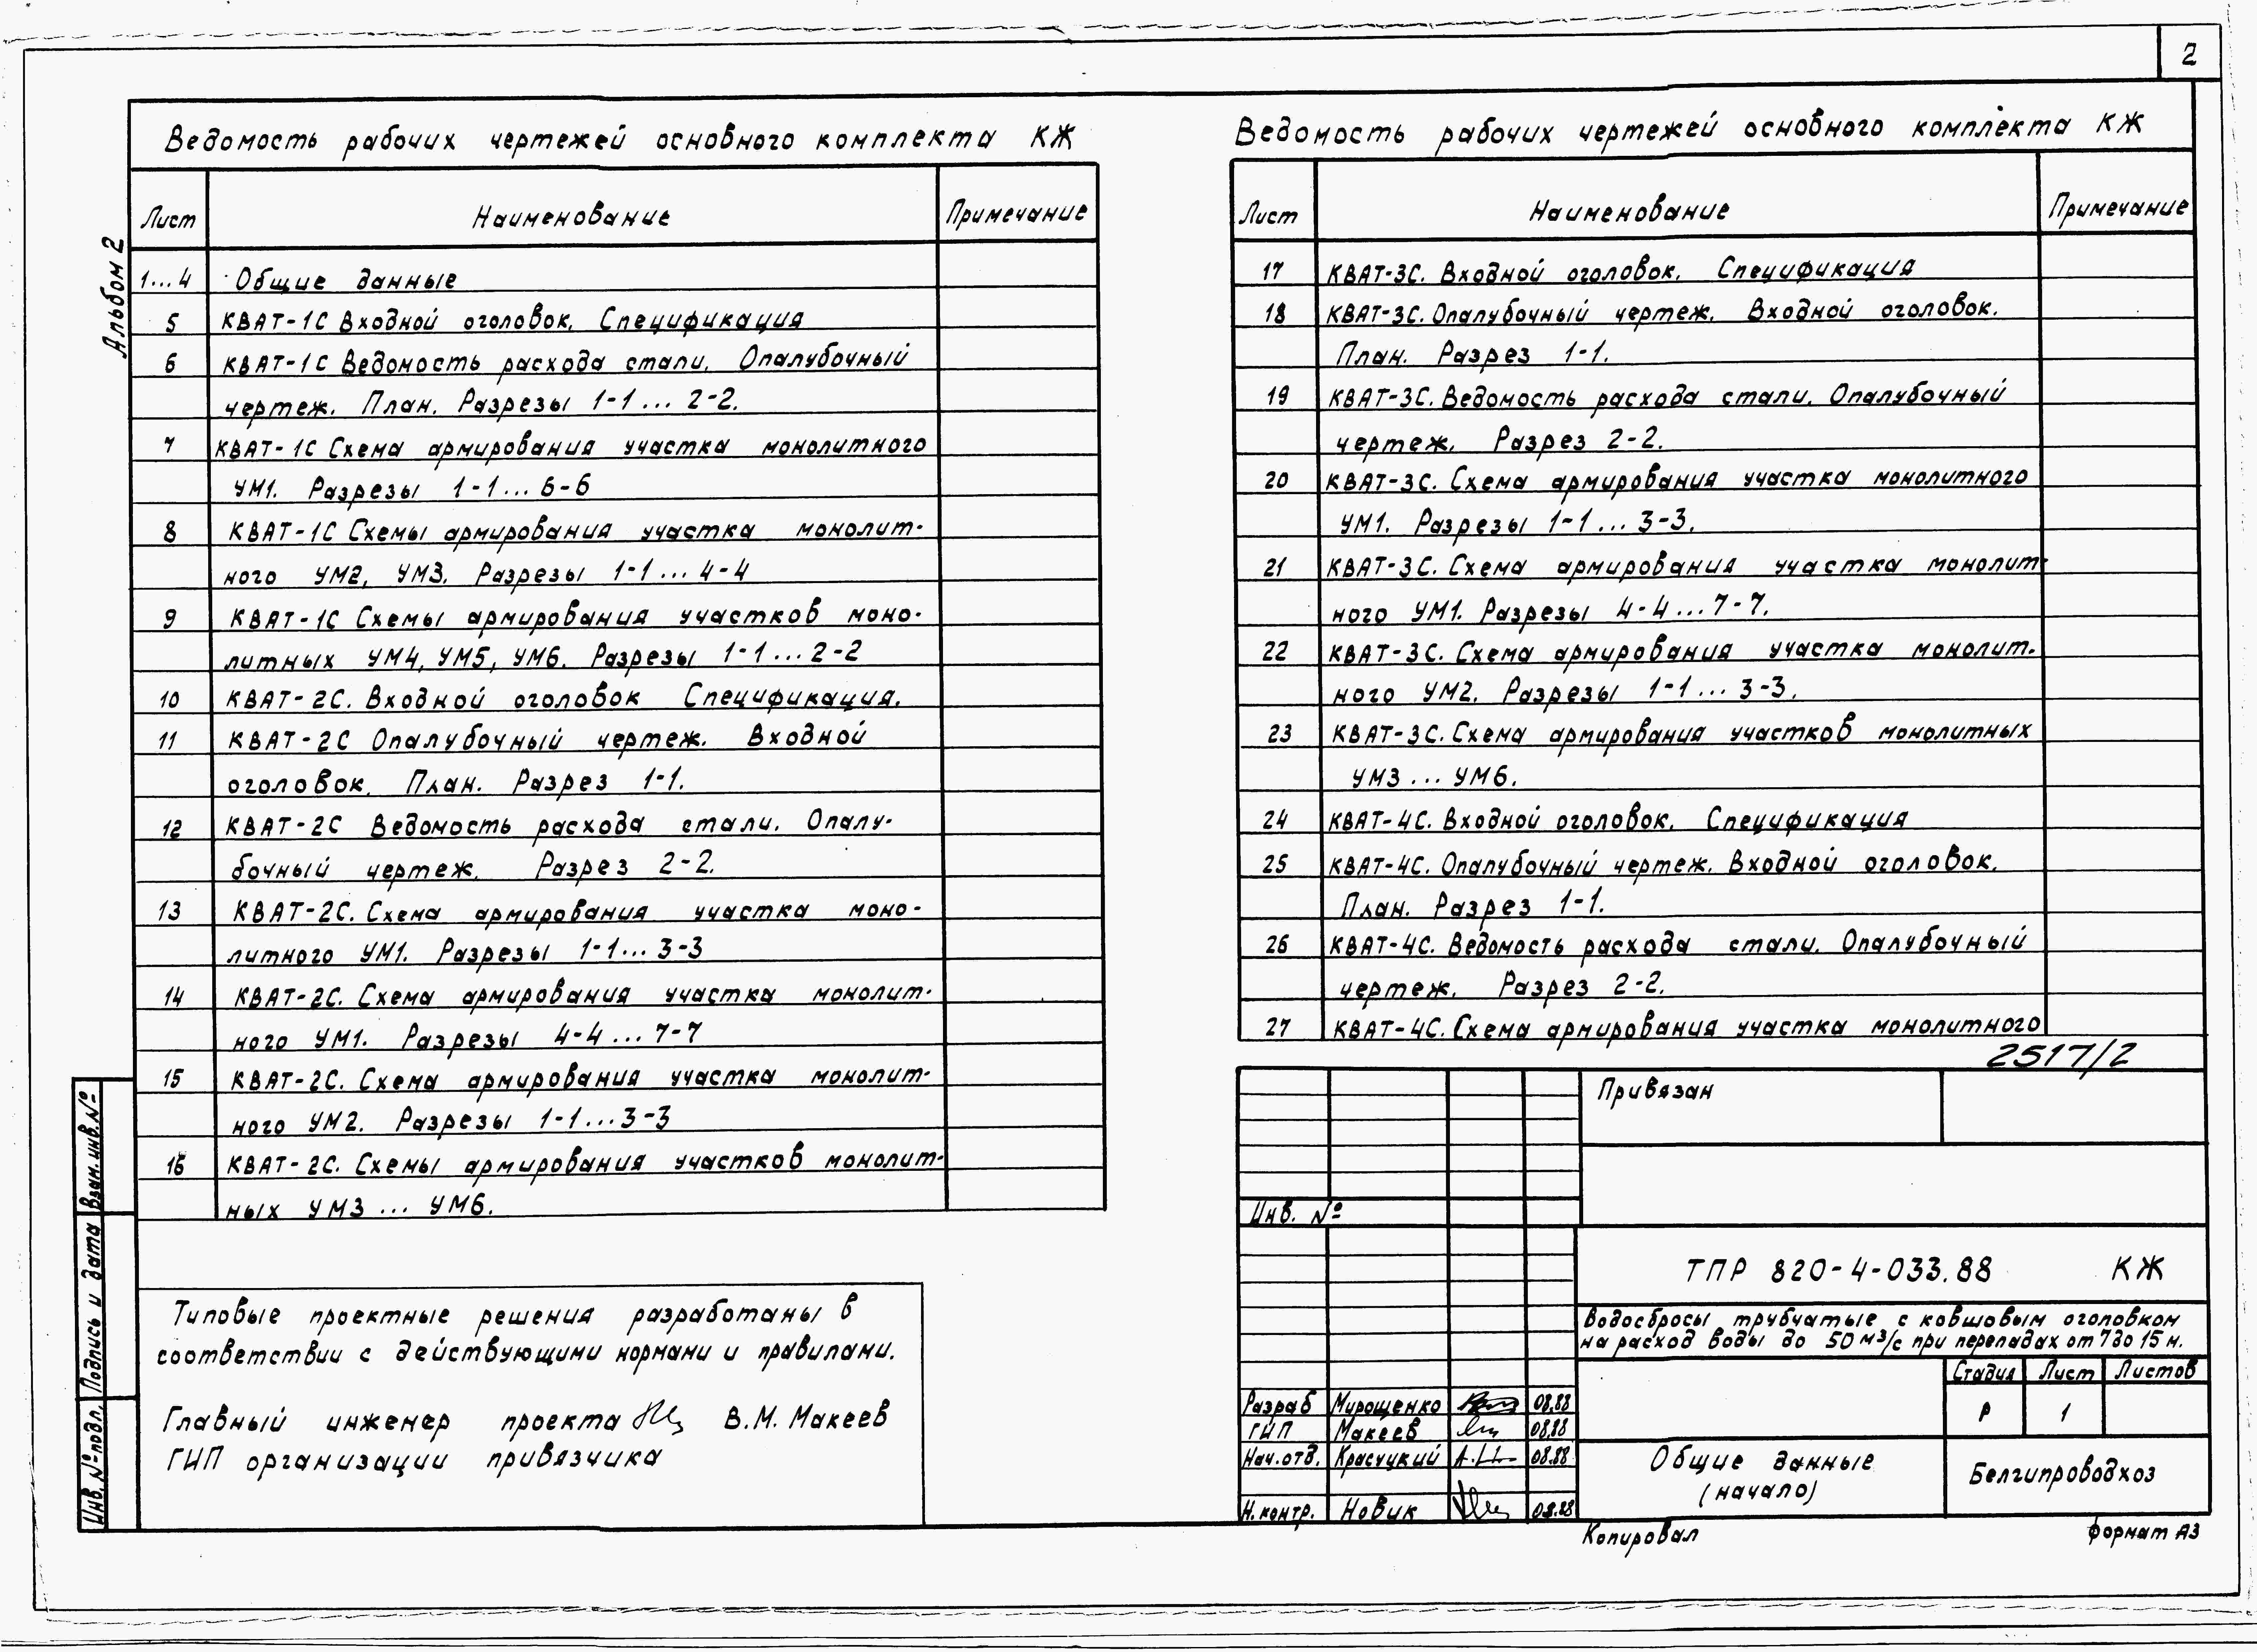 2
Альбом 2
Ведомость рабочих чертежей основного комплекта КЖ
Лист Наименование Примечание
1...4 Общие данные
5 КВАТ-1С Входной оголовок. Спецификация
6 КВАТ-1С Ведомость расхода стали. Опалубочный
чертеж. План. Разрезы 1-1...2-2.
7 КВАТ-1С Схема армирования участка монолитного
УМ1. Разрезы 1-1...6-6
8 КВАТ-1С Схемы армирования участка монолит-
ного УМ2, УМ3. Разрезы 1-1...4-4
9 КВАТ-1С Схемы армирования участков моно-
литных УМ4, УМ5, УМ6. Разрезы 1-1...2-2
10 КВАТ-2С. Входной оголовок Спецификация.
11 КВАТ-2С Опалубочный чертеж. Входной
оголовок. План. Разрез 1-1.
12 КВАТ-2С Ведомость расхода стали. Опалу-
бочный чертеж. Разрез 2-2.
13 КВАТ-2С. Схема армирования участка моно-
литного УМ1. Разрезы 1-1...3-3
14 КВАТ-2С. Схема армирования участка монолит-
ного УМ1. Разрезы 4-4...7-7
15 КВАТ-2С. Схема армирования участка монолит-
ного УМ2. Разрезы 1-1...3-3
16 КВАТ-2С. Схемы армирования участков монолит-
ных УМ3...УМ6.
Ведомость рабочих чертежей основного комплекта КЖ
Лист Наименование Примечание
17 КВАТ-3С. Входной оголовок. Спецификация
18 КВАТ-3С. Опалубочный чертеж. Входной оголовок.
План. Разрез 1-1.
19 КВАТ-3С. Ведомость расхода стали. Опалубочный
чертеж. Разрез 2-2.
20 КВАТ-3С. Схема армирования участка монолитного
УМ1. Разрезы 1-1...3-3.
21 КВАТ-3С. Схема армирования участка монолит-
ного УМ1. Разрезы 4-4...7-7.
22 КВАТ-3С. Схема армирования участка монолит-
ного УМ2. Разрезы 1-1...3-3.
23 КВАТ-3С. Схема армирования участков монолитных
УМ3...УМ6.
24 КВАТ-4С. Входной оголовок. Спецификация
25 КВАТ-4С. Опалубочный чертеж. Входной оголовок.
План. Разрез 1-1.
26 КВАТ-4С. Ведомость расхода стали. Опалубочный
чертеж. Разрез 2-2.
27 КВАТ-4С. Схема армирования участка монолитного
2517/2
Привязан
Инв. №
ТПР 820-4-033.88 КЖ
Водосбросы трубчатые с ковшовым оголовком
на расход воды до 50 м³/с при перепадах от 7 до 15 м.
Стадия Лист Листов
Р 1
Разраб Мирощенко 08.88
ГИП Макеев 08.88
Нач.отд. Красуцкий 08.88
Н.контр. Новик 08.88
Общие данные
(начало)
Белгипроводхоз
Копировал
формат А3
Типовые проектные решения разработаны в
соответствии с действующими нормами и правилами.
Главный инженер проекта В.М. Макеев
ГИП организации привязчика
Взам. инв. №
Подпись и дата
Инв. № подл.